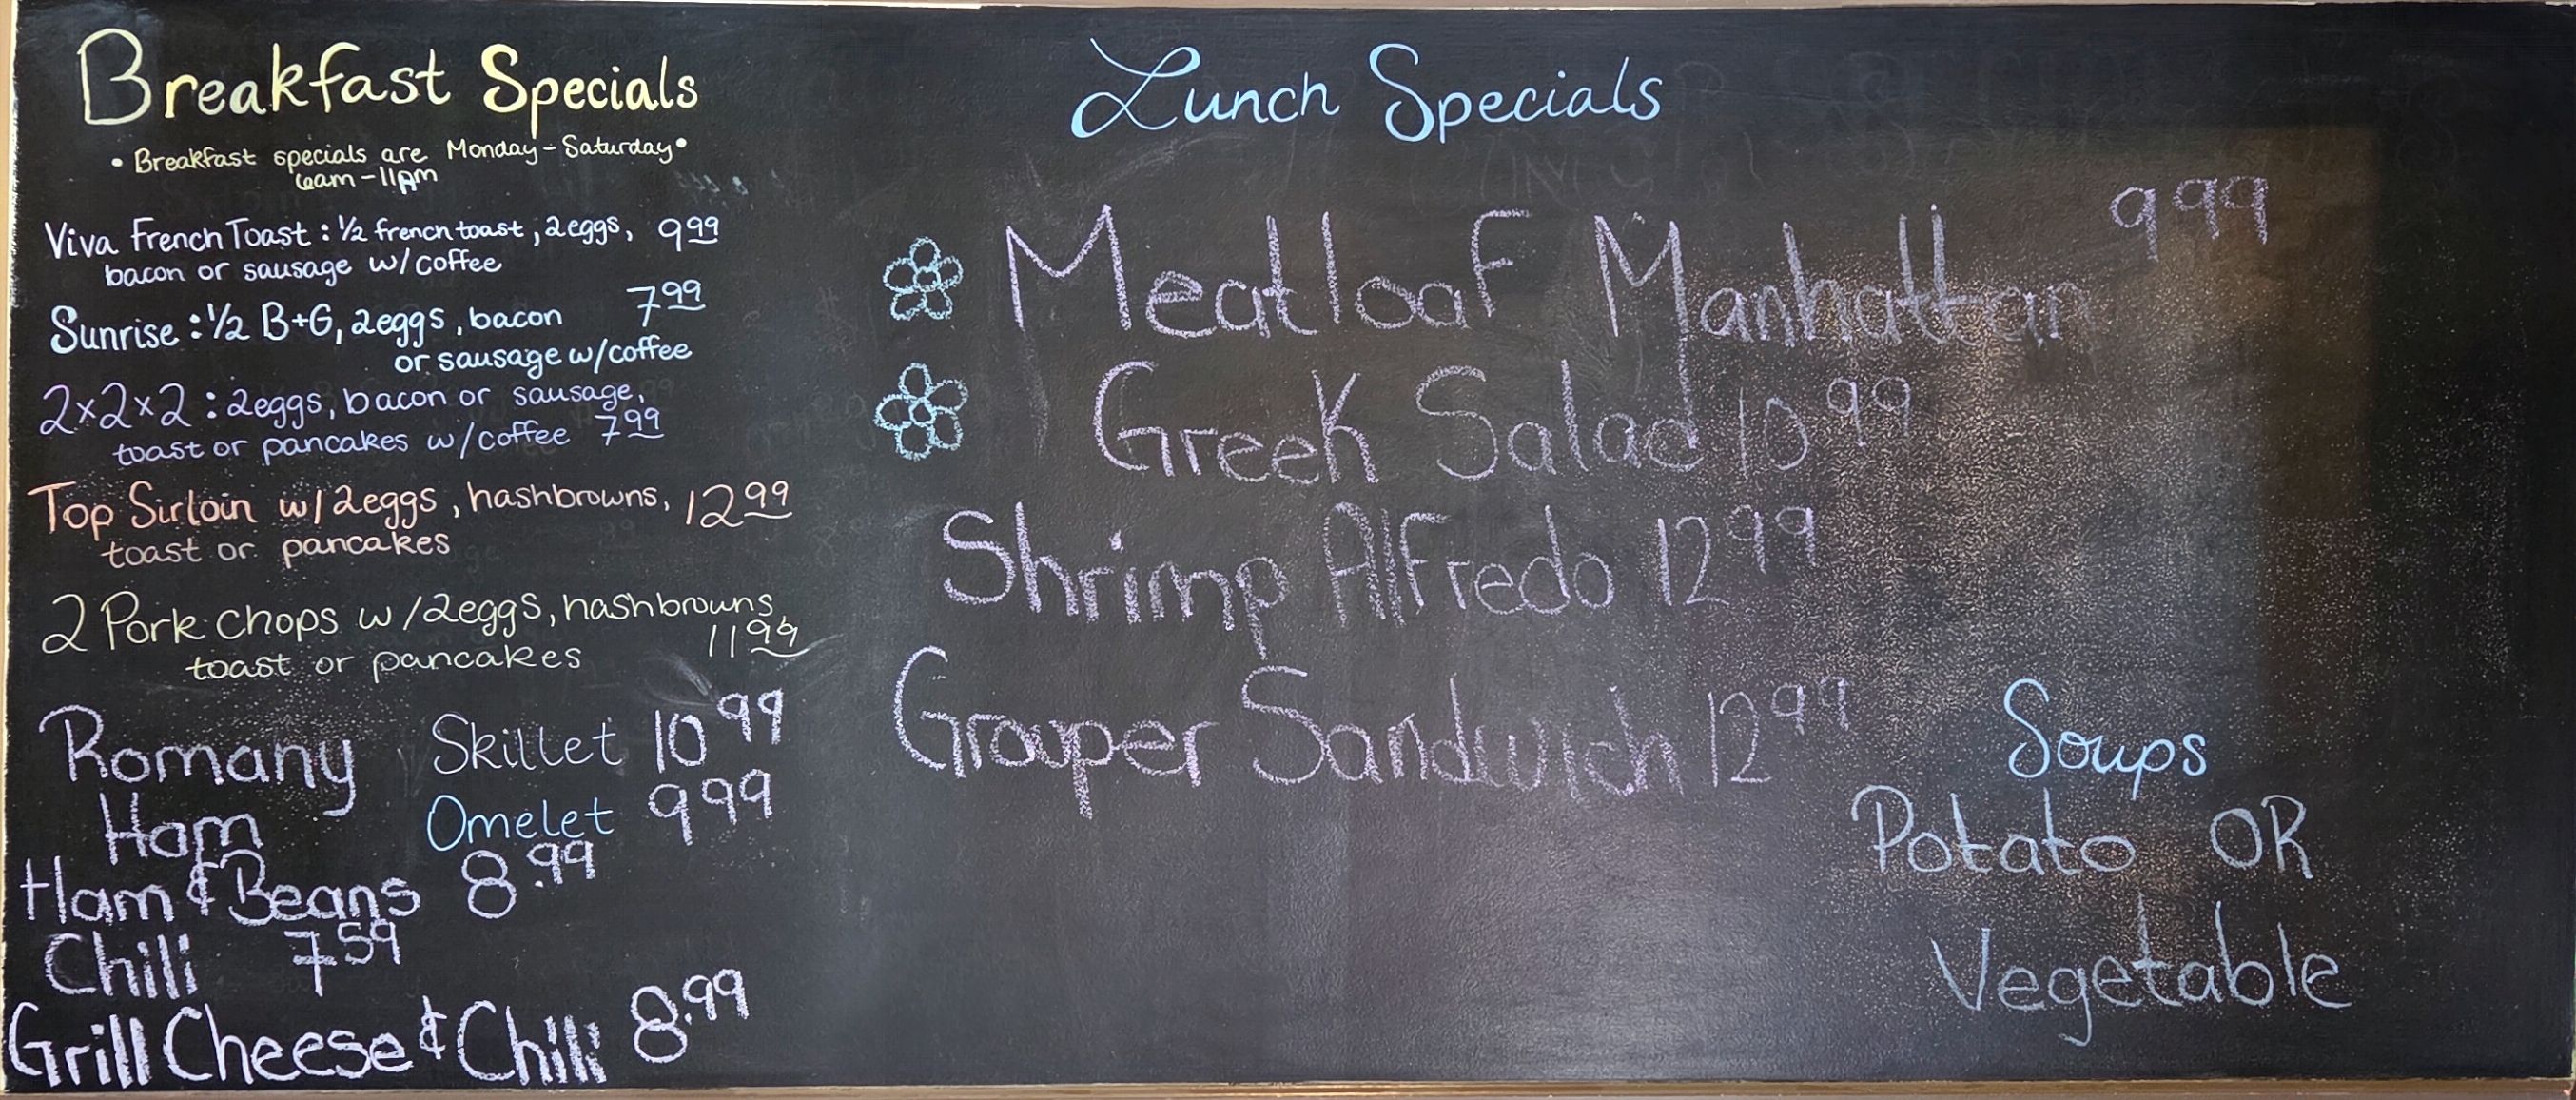 Breakfast Specials
• Breakfast specials are Monday-Saturday•
6am-11am
Viva French Toast: 1/2 french toast, 2eggs, 9 99
bacon or sausage w/coffee
Sunrise: 1/2 B+G, 2eggs, bacon 7 99
or sausage w/coffee
2x2x2: 2eggs, bacon or sausage,
toast or pancakes w/coffee 7 99
Top Sirloin w/2eggs, hashbrowns, 12 99
toast or pancakes
2 Pork chops w/2eggs, hashbrowns, 11 99
toast or pancakes
Romany Skillet 10 99
Ham Omelet 9 99
Ham & Beans 8.99
Chili 7 59
Grill Cheese & Chili 8.99
Lunch Specials
Meatloaf Manhattan 9 99
Greek Salad 10 99
Shrimp Alfredo 12 99
Grouper Sandwich 12 99
Soups
Potato OR
Vegetable